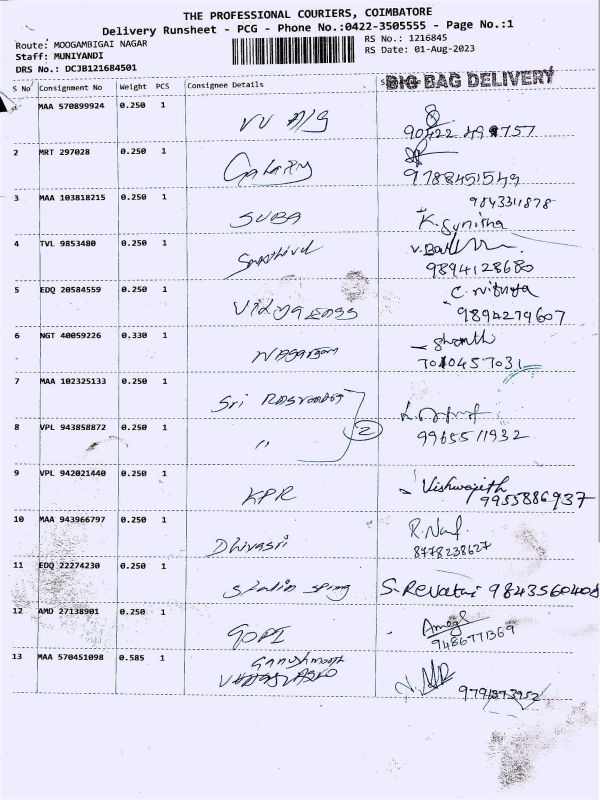 THE PROFESSIONAL COURIERS, COIMBATORE
Delivery Runsheet - PCG - Phone No.:0422-3505555 - Page No.:1
Route: MOOGAMBIGAI NAGAR
RS No.: 1216845
Staff: MUNIYANDI
RS Date: 01-Aug-2023
DRS No.: DCJB121684501
BIG BAG DELIVERY
S No Consignment No Weight PCS Consignee Details
MAA 570899924 0.250 1
2 MRT 297028 0.250 1
9788451549
3 MAA 103818215 0.250 1 SUBA K. Sunitha
9843311878
4 TVL 9853480 0.250 1
9894128680
5 EDQ 20584559 0.250 1 Vidya Engg
9894279607
6 NGT 40059226 0.330 1
7 MAA 102325133 0.250 1 Sri
8 VPL 943858872 0.250 1 " 2
9965511932
9 VPL 942021440 0.250 1 KPR Vishwajith
9955886937
10 MAA 943966797 0.250 1 Dhivasri
8778238627
11 EDQ 22274230 0.250 1 Stalin Spring S. Revathi 9843560408
12 AMD 27138901 0.250 1 GOPI
9486771369
13 MAA 570451098 0.585 1